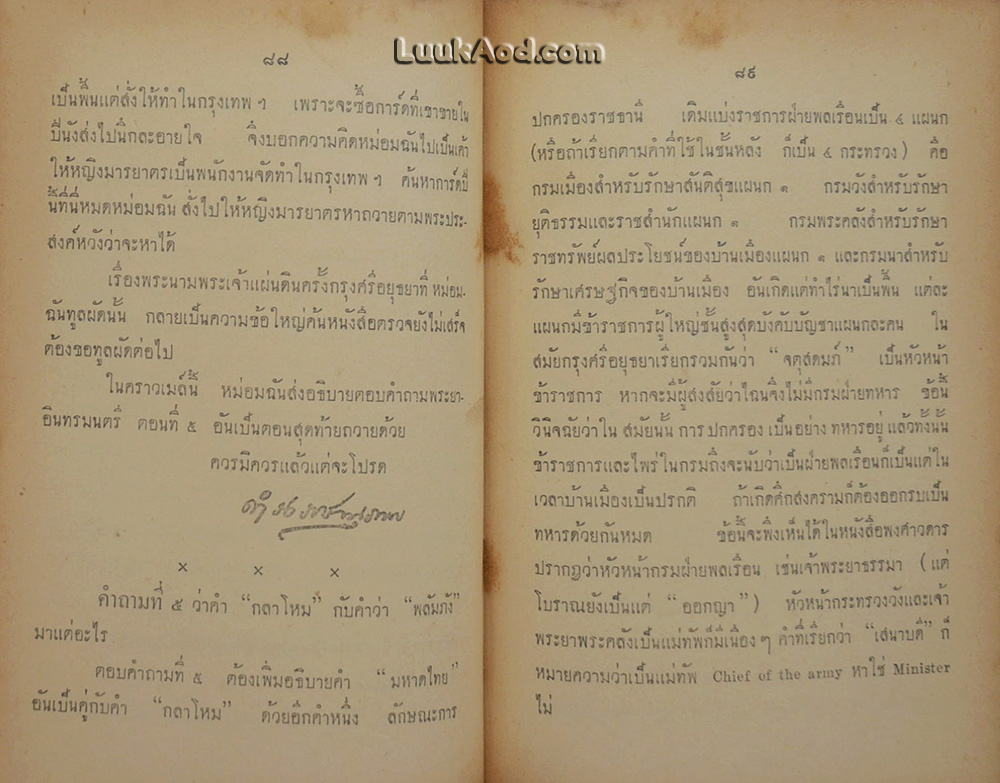 LuukAod.com
๘๘
เป็นพื้นแต่สั่งให้ทำในกรุงเทพ ฯ เพราะจะซื้อการ์ดที่เขาขายใน
ปีนังส่งไปนึกละอายใจ จึงบอกความคิดหม่อมฉันไปเป็นเค้า
ให้หญิงมารยาตรเป็นพนักงานจัดทำในกรุงเทพ ฯ ค้นหาการ์ดปี
นี้ที่นี่หมดหม่อมฉัน สั่งไปให้หญิงมารยาตรหาถวายตามพระประ-
สงค์หวังว่าจะหาได้
เรื่องพระนามพระเจ้าแผ่นดินครั้งกรุงศรีอยุธยาที่ หม่อม-
ฉันทูลผัดนั้น กลายเป็นความข้อใหญ่ค้นหนังสือตรวจยังไม่เสร็จ
ต้องขอทูลผัดต่อไป
ในคราวเมล์นี้ หม่อมฉันส่งอธิบายตอบคำถามพระยา-
อินทรมนตรี ตอนที่ ๕ อันเป็นตอนสุดท้ายถวายด้วย
ควรมิควรแล้วแต่จะโปรด
ดำรงราชานุภาพ
× × ×
คำถามที่ ๕ ว่าคำ “กลาโหม” กับคำว่า “พลัมภัง”
มาแต่อะไร
ตอบคำถามที่ ๕ ต้องเพิ่มอธิบายคำ “มหาดไทย”
อันเป็นคู่กับคำ “กลาโหม” ด้วยอีกคำหนึ่ง ลักษณะการ
๘๙
ปกครองราชธานี เดิมแบ่งราชการฝ่ายพลเรือนเป็น ๔ แผนก
(หรือถ้าเรียกตามคำที่ใช้ในชั้นหลัง ก็เป็น ๔ กระทรวง) คือ
กรมเมืองสำหรับรักษาสันติสุขแผนก ๑ กรมวังสำหรับรักษา
ยุติธรรมและราชสำนักแผนก ๑ กรมพระคลังสำหรับรักษา
ราชทรัพย์ผลประโยชน์ของบ้านเมืองแผนก ๑ และกรมนาสำหรับ
รักษาเศรษฐกิจของบ้านเมือง อันเกิดแต่ทำไร่นาเป็นพื้น แต่ละ
แผนกมีข้าราชการผู้ใหญ่ชั้นสูงสุดบังคับบัญชาแผนกละคน ใน
สมัยกรุงศรีอยุธยาเรียกรวมกันว่า “จตุสดมภ์” เป็นหัวหน้า
ข้าราชการ หากจะมีผู้สงสัยว่าไฉนจึงไม่มีกรมฝ่ายทหาร ข้อนี้
วินิจฉัยว่าใน สมัยนั้น การ ปกครอง เป็นอย่าง ทหารอยู่ แล้วทั้งนั้น
ข้าราชการและไพร่ในกรมถึงจะนับว่าเป็นฝ่ายพลเรือนก็เป็นแต่ใน
เวลาบ้านเมืองเป็นปรกติ ถ้าเกิดศึกสงครามก็ต้องออกรบเป็น
ทหารด้วยกันหมด ข้อนี้จะพึงเห็นได้ในหนังสือพงศาวดาร
ปรากฏว่าหัวหน้ากรมฝ่ายพลเรือน เช่นเจ้าพระยาธรรมา (แต่
โบราณยังเป็นแต่ “ออกญา”) หัวหน้ากระทรวงวังและเจ้า
พระยาพระคลังเป็นแม่ทัพก็มีเนือง ๆ คำที่เรียกว่า “เสนาบดี” ก็
หมายความว่าเป็นแม่ทัพ Chief of the army หาใช่ Minister
ไม่